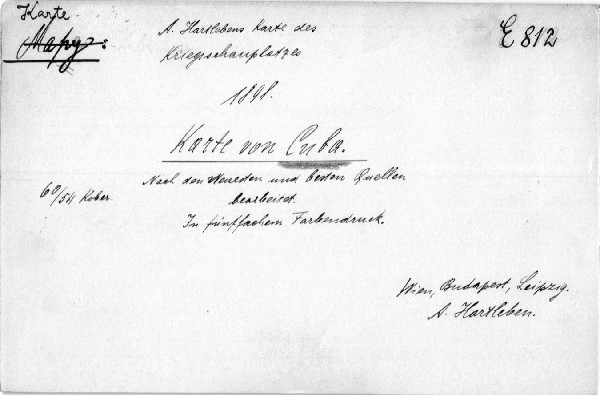 Karte
Mapy:
E 812
A. Hartlebens Karte des
Kriegsschauplatzes
1898.
Karte von Cuba.
Nach den neuesten und besten Quellen
bearbeitet.
In fünffachem Farbendruck.
60/54 Kober.
Wien, Budapest, Leipzig.
A. Hartleben.